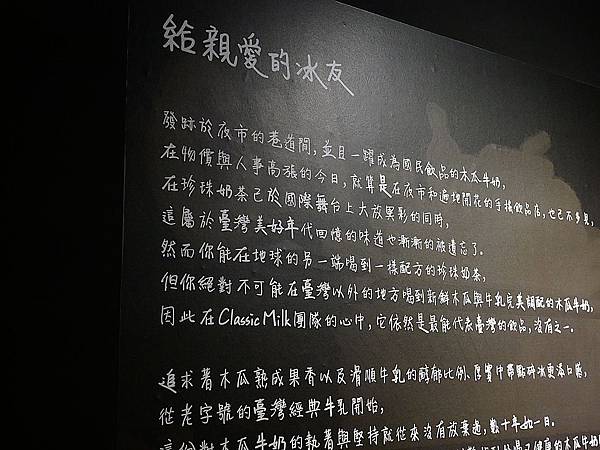 給親愛的冰友
發跡於夜市的巷道間,並且一躍成為國民飲品的木瓜牛奶,
在物價與人事高漲的今日,就算是在夜市和遍地開花的手搖飲品店,也已不多見,
在珍珠奶茶已於國際舞台上大放異彩的同時,
這屬於臺灣美好年代回憶的味道也漸漸的被遺忘了。
然而你能在地球的另一端喝到一樣配方的珍珠奶茶,
但你絕對不可能在臺灣以外的地方喝到新鮮木瓜與牛乳完美調配的木瓜牛奶,
因此在Classic Milk團隊的心中,它依然是最能代表臺灣的飲品,沒有之一。
追求著木瓜熟成果香以及滑順牛乳的醇郁比例、厚實中帶點碎冰更添口感,
從老字號的臺灣經典牛乳開始,
這份對木瓜牛奶的執著與堅持就從來沒有放棄過,數十年如一日。
健康的木瓜牛奶